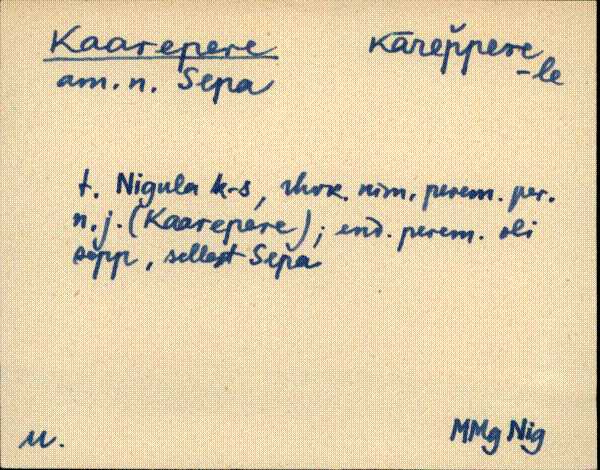 Kaarepere
kārep̆pere
-le
am. n. Sepa
t. Nigula k-s, rhvk. nim. perem. per.
n. j. (Kaarepere); end. perem. oli
sepp, sellest Sepa
u.
MMg Nig